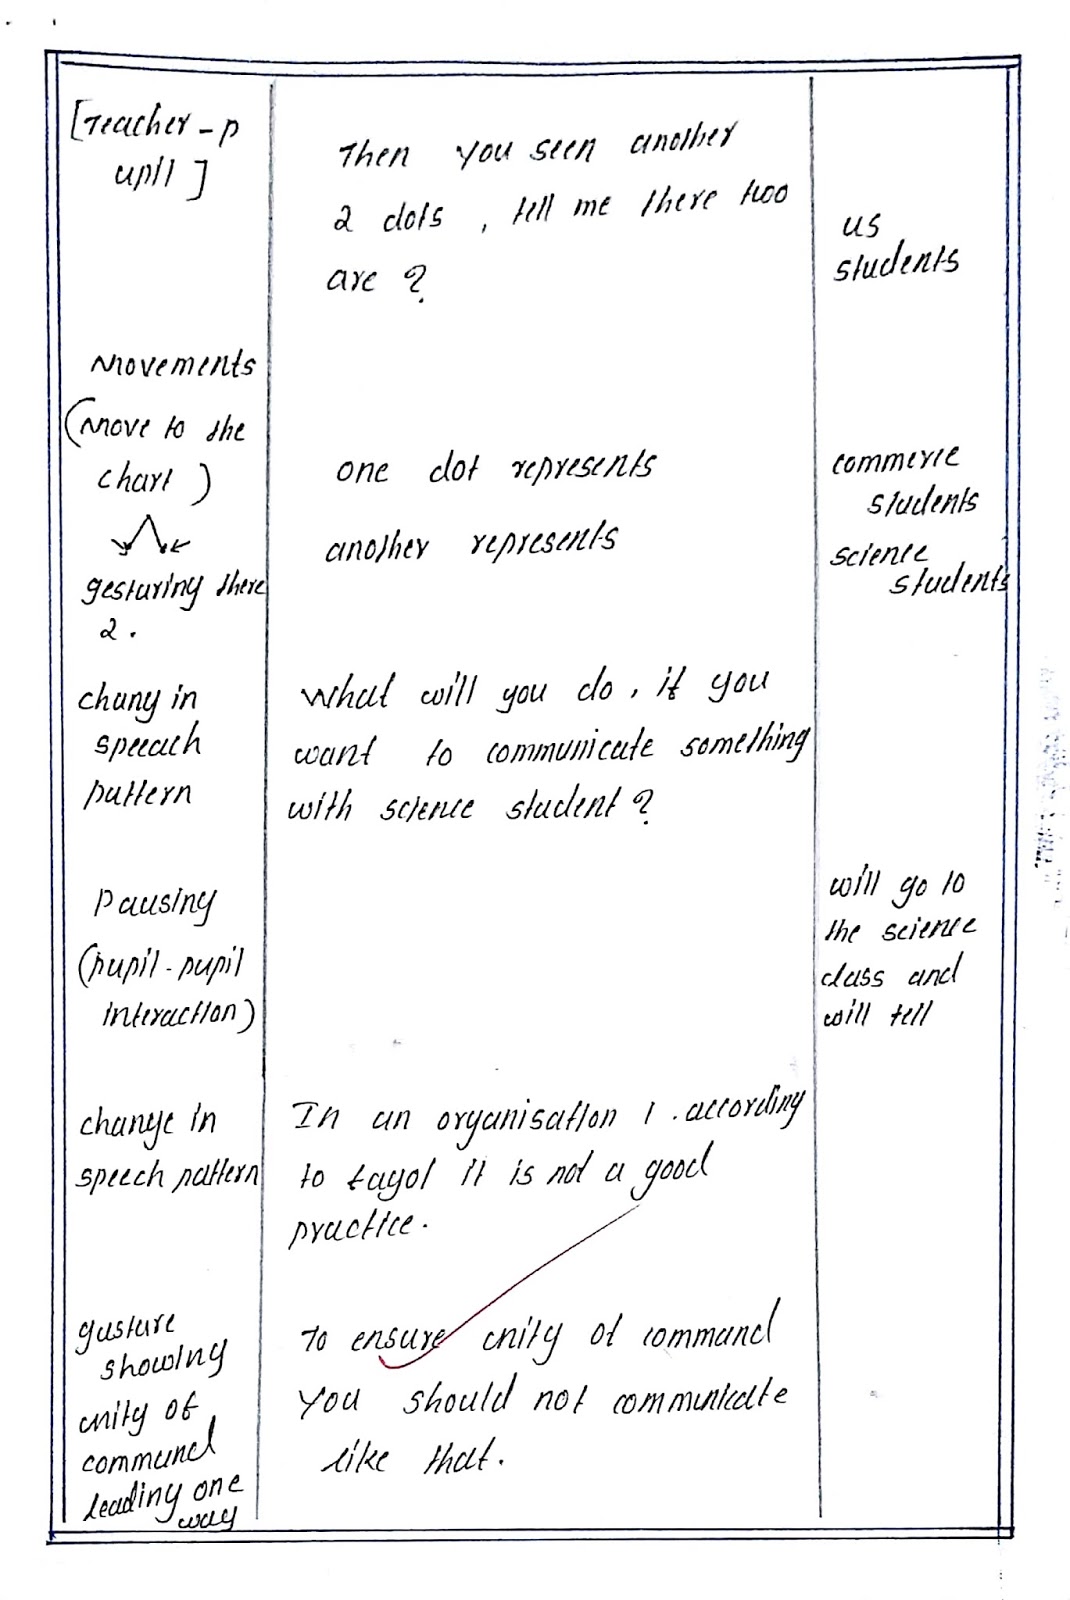 [Teacher-p
upil]
Then you seen another
2 dots, tell me there two
are ?
us
students
Movements
(Move to the
chart )
gesturing there
2.
one dot represents
another represents
commerce
students
science
students
chang in
speeach
pattern
What will you do, if you
want to communicate something
with science student ?
Pausing
(pupil-pupil
interaction)
will go to
the science
class and
will tell
change in
speech pattern
In an organisation , according
to fayol it is not a good
practice.
gusture
showing
unity of
command
leading one
way
To ensure unity of command
you should not communicate
like that.